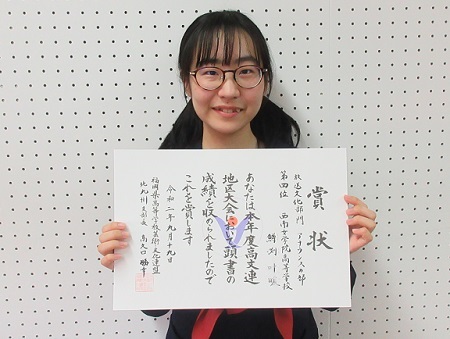 賞状
放送文化部門 アナウンスの部
第四位 西南女学院高等学校
あなたは本年度高文連
地区大会において頭書の
成績を収められましたので
これを賞します
令和二年九月十九日
福岡県高等学校芸術・文化連盟
北九州支部長